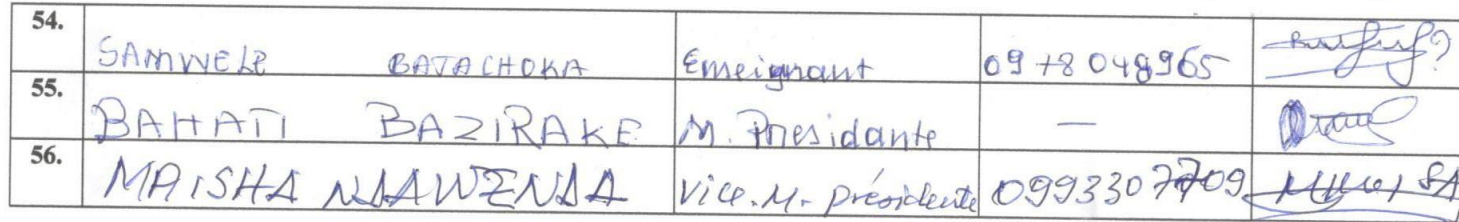 54. SAMWELE BATACHOKA Enseignant 0978048965
55. BAHATI BAZIRAKE M. Présidante —
56. MAISHA NDAWENDA Vice.M. présidente 0993307709